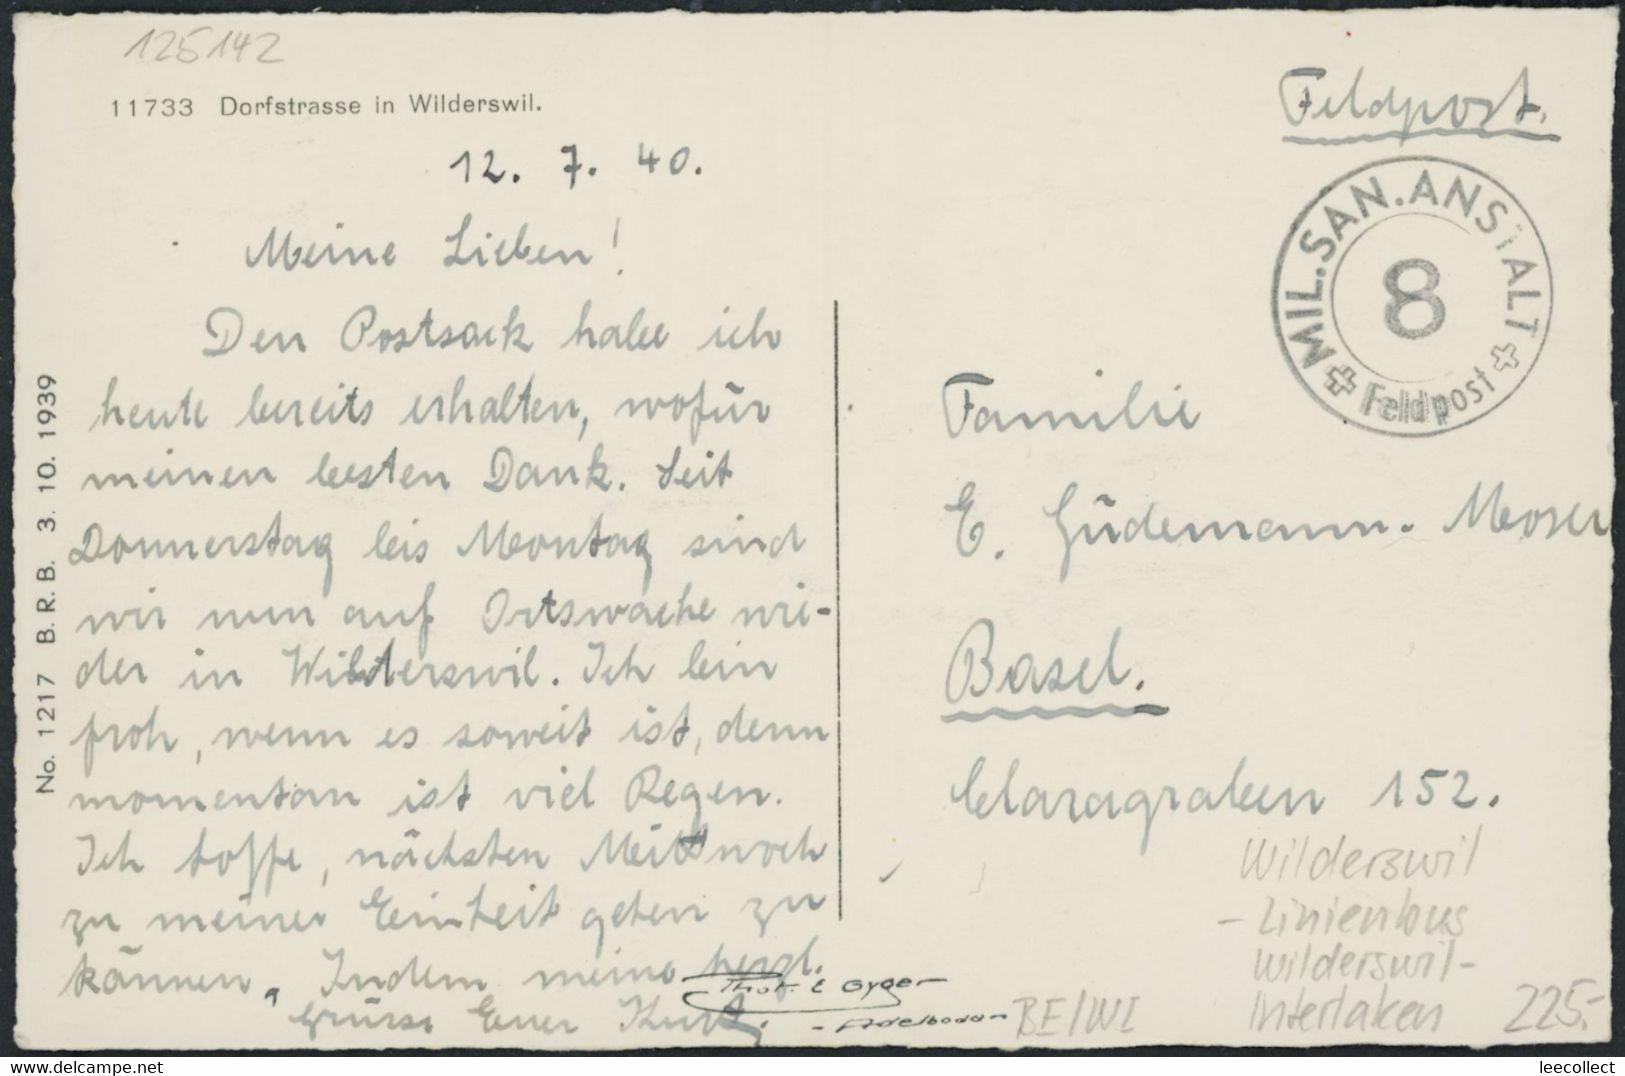 125142
11733 Dorfstrasse in Wilderswil.
12. 7. 40.
Meine Lieben!
Den Postsack habe ich
heute bereits erhalten, wofür
meinen besten Dank. Seit
Donnerstag bis Montag sind
wir nun auf Ortswache wie-
der in Wilderswil. Ich bin
froh, wenn es soweit ist, denn
momentan ist viel Regen.
Ich hoffe, nächsten Mittwoch
zu meiner Einheit gehen zu
können. Indem meine herzl.
Grüsse Euer Kurt.
No. 1217 B.R.B. 3. 10. 1939
Phot. E Gyger
- Adelboden
Feldpost.
MIL. SAN. ANSTALT
8
Feldpost
Familie
E. Güdemann-Moser
Basel.
Claragraben 152.
Wilderswil
- Linienbus
Wilderswil-
Interlaken
BE/WI
225.-
leecollect